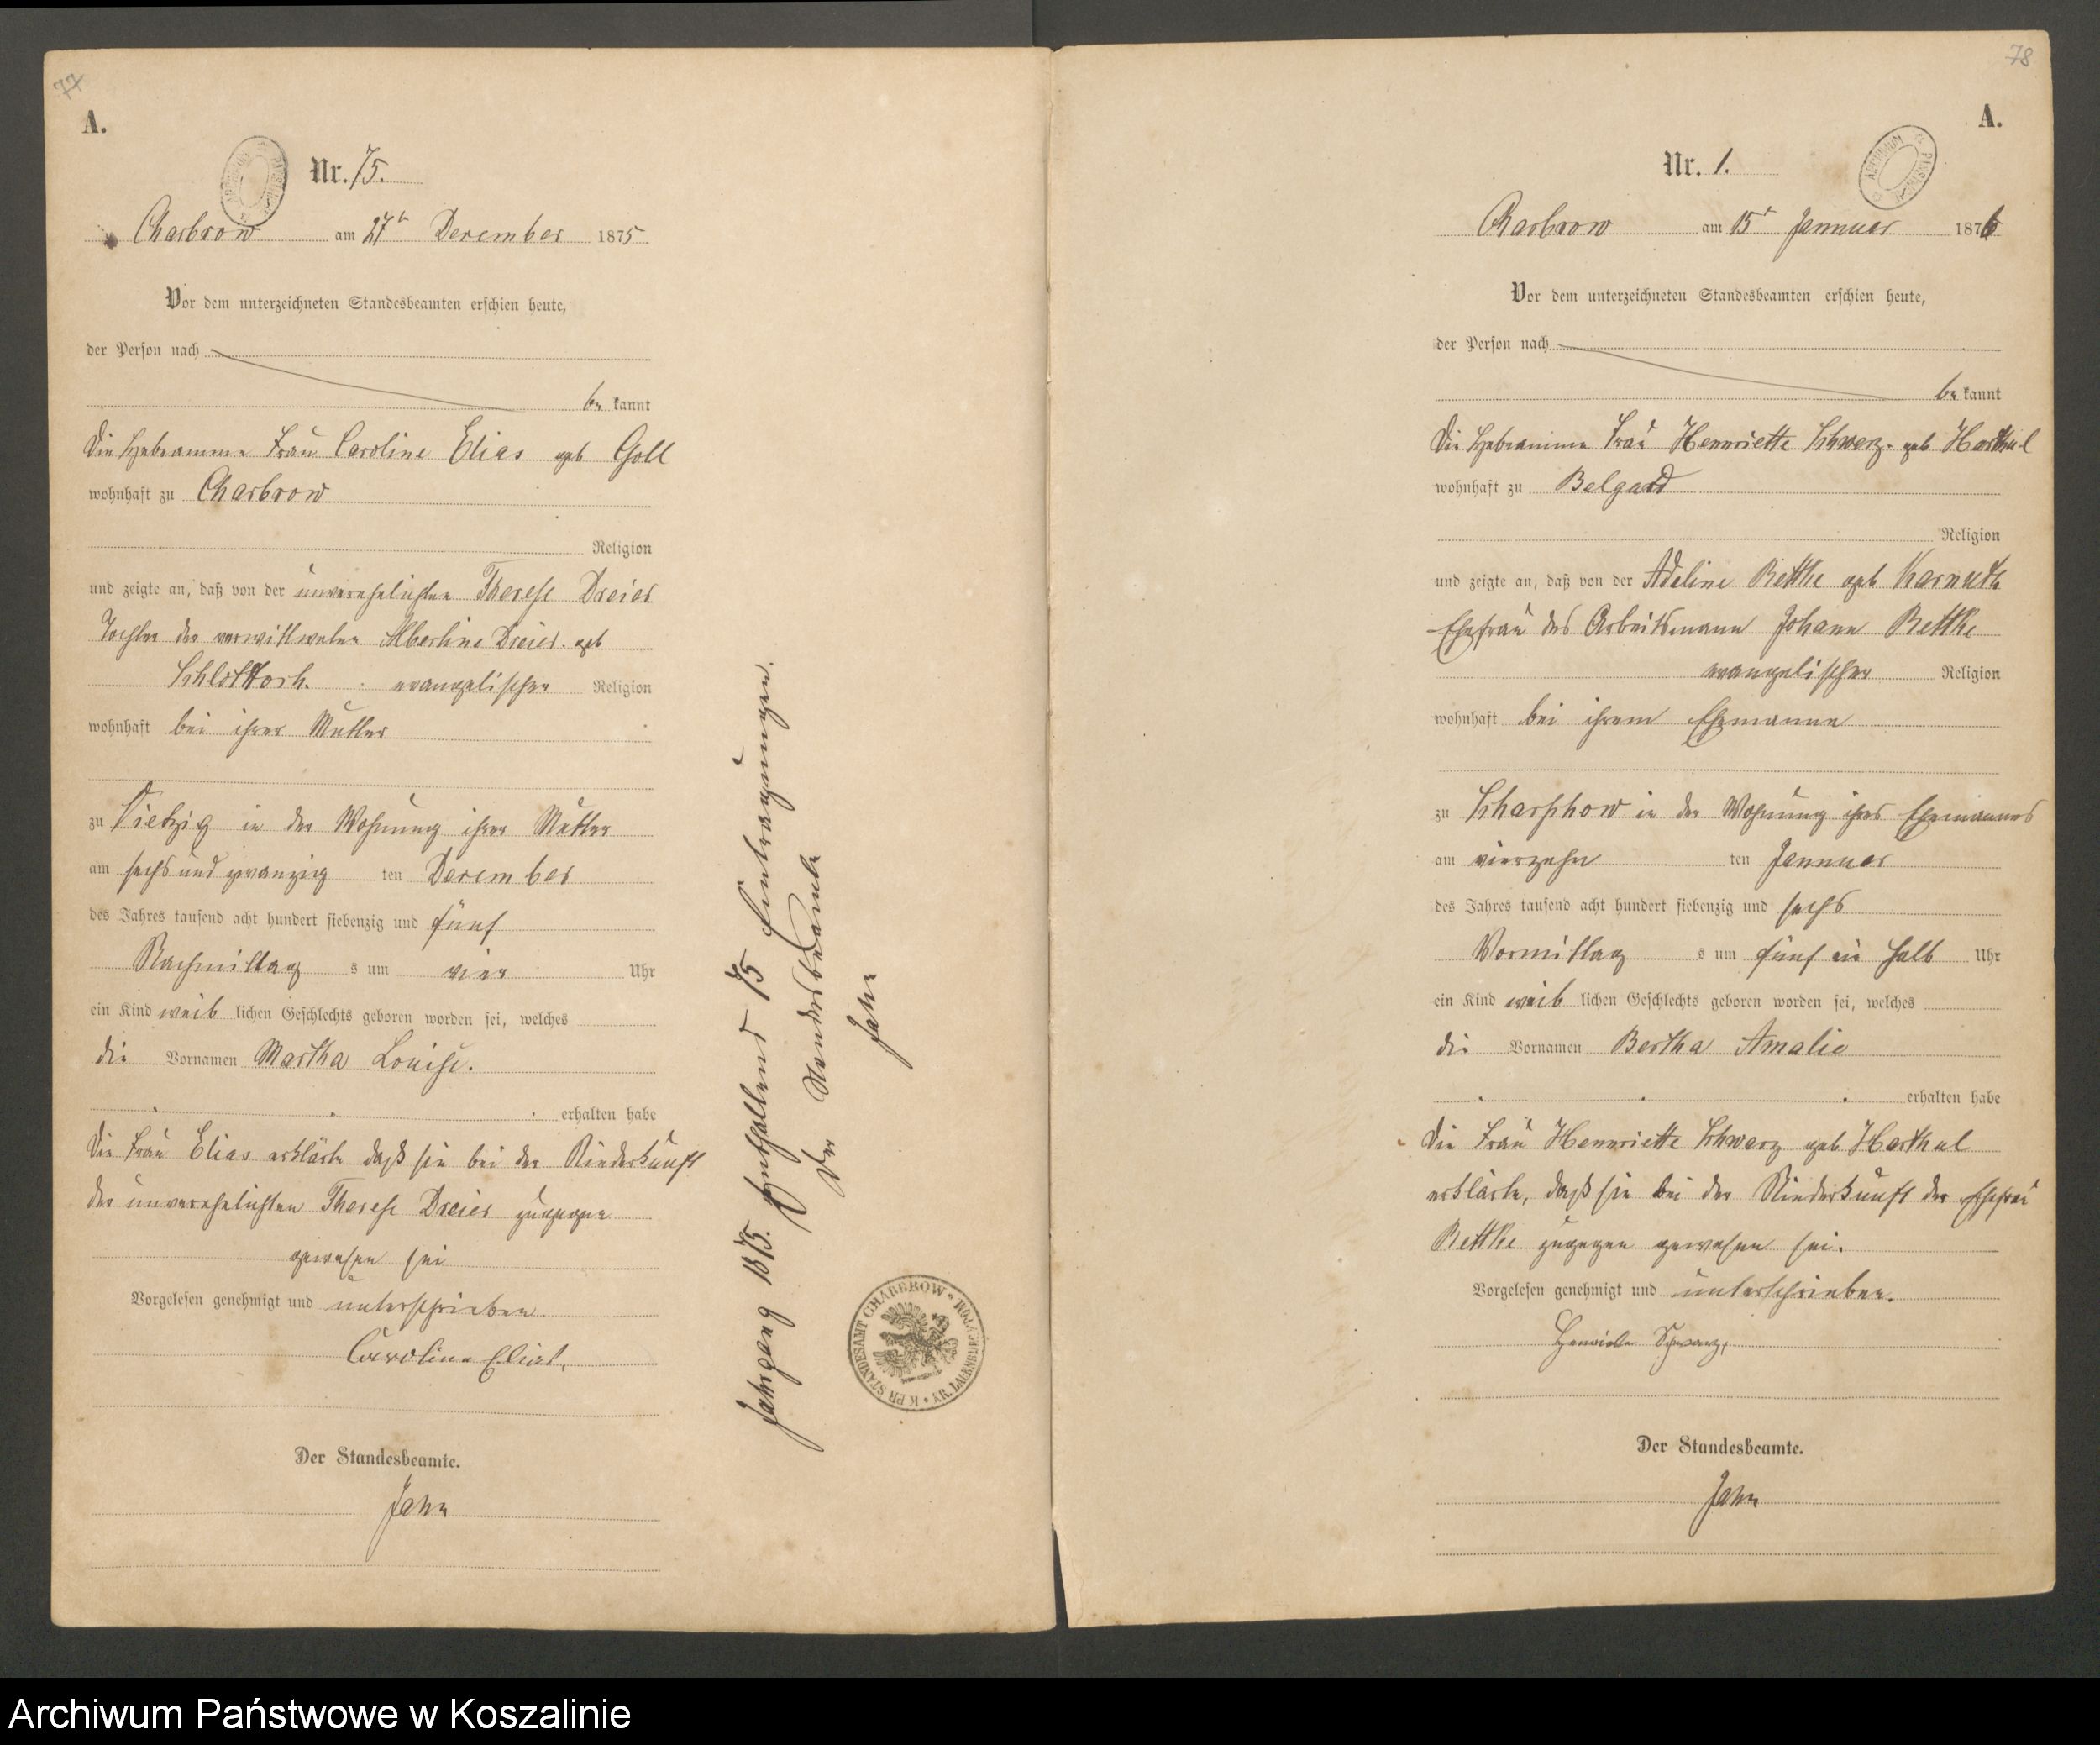 77
A.
Nr. 75.
Charbrow am 27t December 1875
Vor dem unterzeichneten Standesbeamten erschien heute,
der Person nach
be kannt
Die Hebeamme Frau Caroline Elias geb Goll
wohnhaft zu Charbrow
Religion
und zeigte an, daß von der unverehelichten Therese Dreier
Tochter der verwittweten Albertine Dreier geb
evangelischer Religion
wohnhaft bei ihrer Mutter
zu Vietzig in der Wohnung ihrer Mutter
am sechs und zwanzig ten December
des Jahres tausend acht hundert siebenzig und fünf
Nachmittag s um vier Uhr
ein Kind weib lichen Geschlechts geboren worden sei, welches
die Vornamen Martha Louise.
erhalten habe
Die Frau Elias erklärte daß sie bei der Niederkunft
der unverehelichten Therese Dreier zugegen
gewesen sei
Vorgelesen genehmigt und unterschrieben.
Caroline Elias.
Der Standesbeamte.
Jahn
Jahrgang 1875. Enthaltend 75 Eintragungen.
Der Standesbeamte
Jahn
K. PR. STANDESAMT CHARBROW * KR. LAUENBURG i/POM.
78
A.
ARCHIWUM PAŃSTWOWE
Nr. 1.
Charbrow am 15t Januar 1876
Vor dem unterzeichneten Standesbeamten erschien heute,
der Person nach
be kannt
Die Hebeamme Frau Hennriette Schwarz geb Harthul
wohnhaft zu Belgard
Religion
und zeigte an, daß von der Adeline Rettke geb Karnuth
Ehefrau des Arbeitsmann Johann Rettke
evangelischer Religion
wohnhaft bei ihrem Ehemanne
zu Scharschow in der Wohnung ihres Ehemannes
am vierzehn ten Januar
des Jahres tausend acht hundert siebenzig und sechs
Vormittag s um fünf ein halb Uhr
ein Kind weib lichen Geschlechts geboren worden sei, welches
die Vornamen Bertha Amalie
erhalten habe
Die Frau Hennriette Schwarz geb Harthul
erklärte, daß sie bei der Niederkunft der Ehefrau
Rettke zugegen gewesen sei.
Vorgelesen genehmigt und unterschrieben.
Henriette Schwarz,
Der Standesbeamte.
Jahn
Archiwum Państwowe w Koszalinie